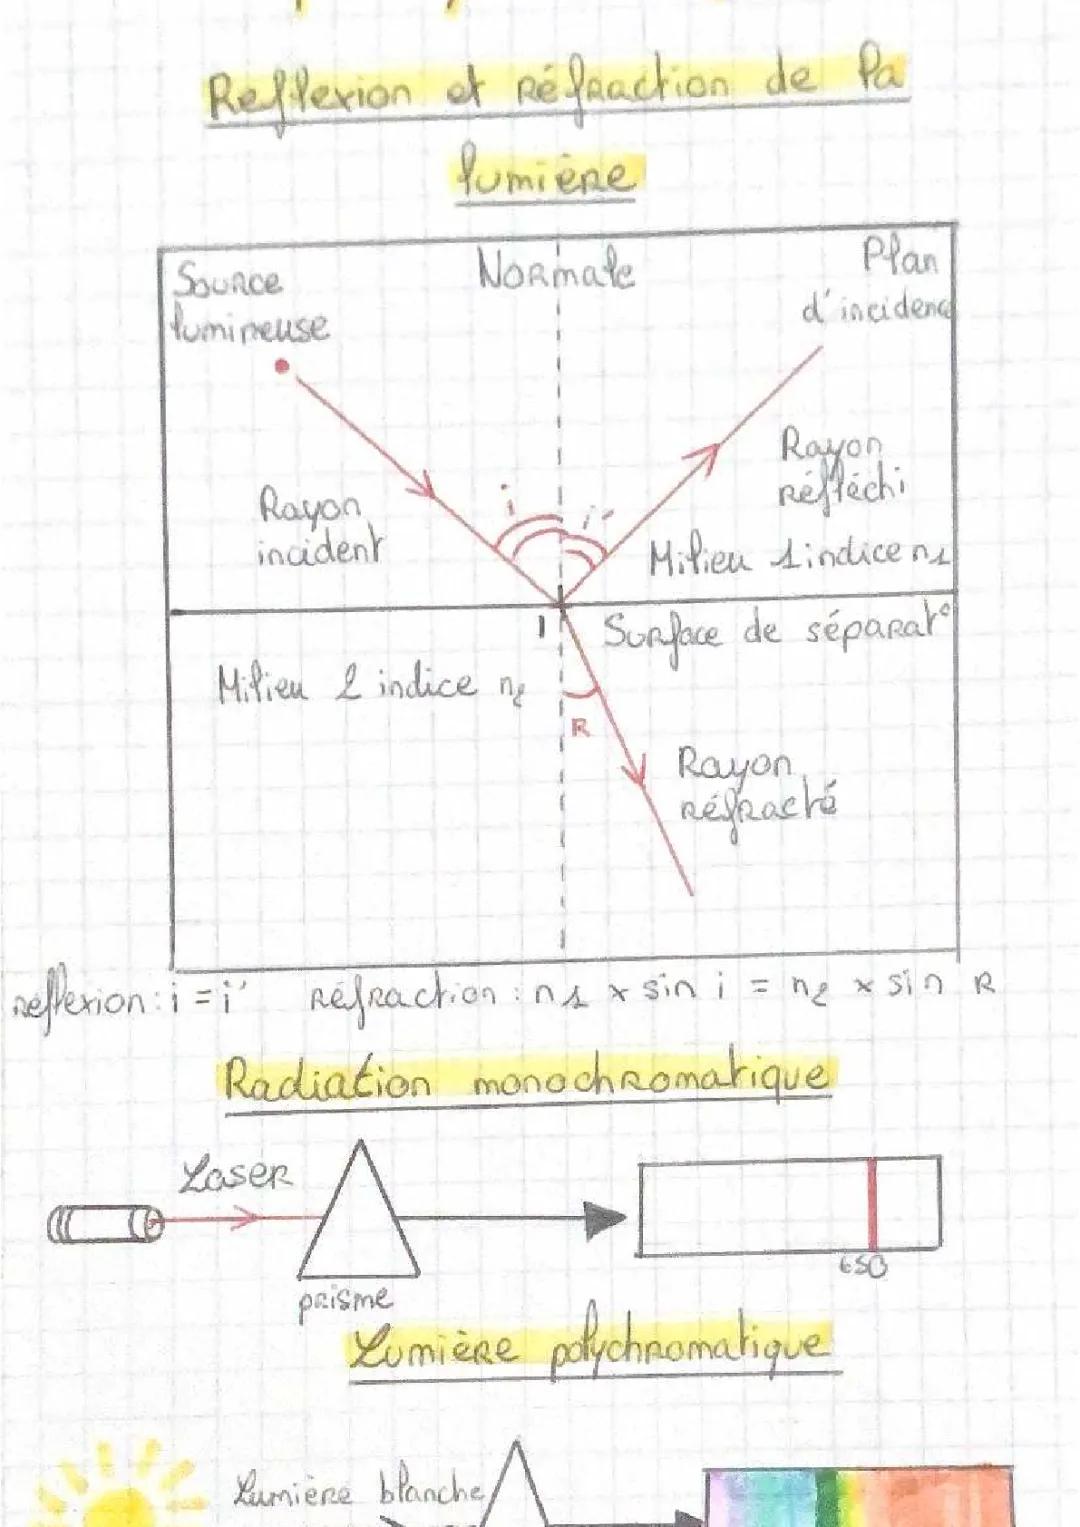 Reflexion et Réfraction de la
lumière
Source
lumineuse
Normale
Plan
d'incidence
Rayon
incident
i
i'
Rayon
réfléchi
Milieu 1 indice n1
I
Surface de séparat°
Milieu 2 indice n2
R
Rayon
réfracté
reflexion : i = i' Réfraction : n1 x sin i = n2 x sin R
Radiation monochromatique
Laser
prisme
650
Lumière polychromatique
Lumière blanche